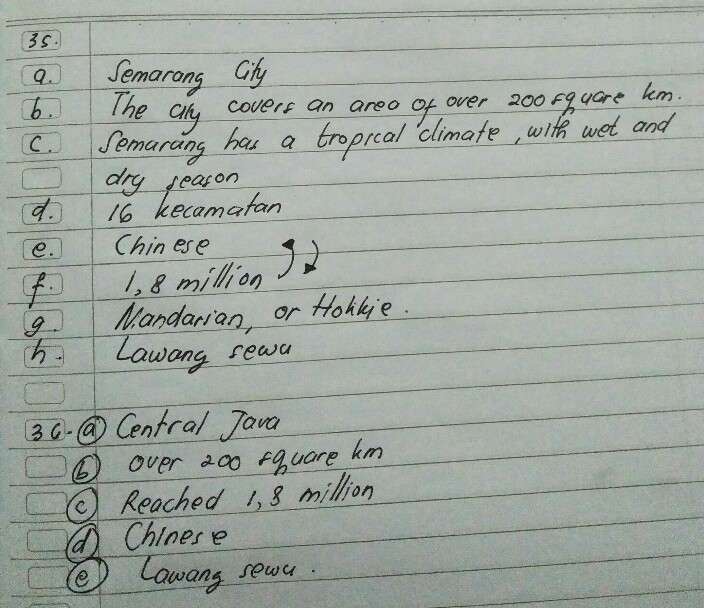 35.
a. Semarang City
b. The city covers an area of over 200 square km.
c. Semarang has a tropical climate, with wet and
dry season
d. 16 kecamatan
e. Chinese
f. 1,8 million
g. Mandarian, or Hokkie.
h. Lawang sewu
36. a Central Java
b over 200 square km
c Reached 1,8 million
d Chinese
e Lawang sewu.